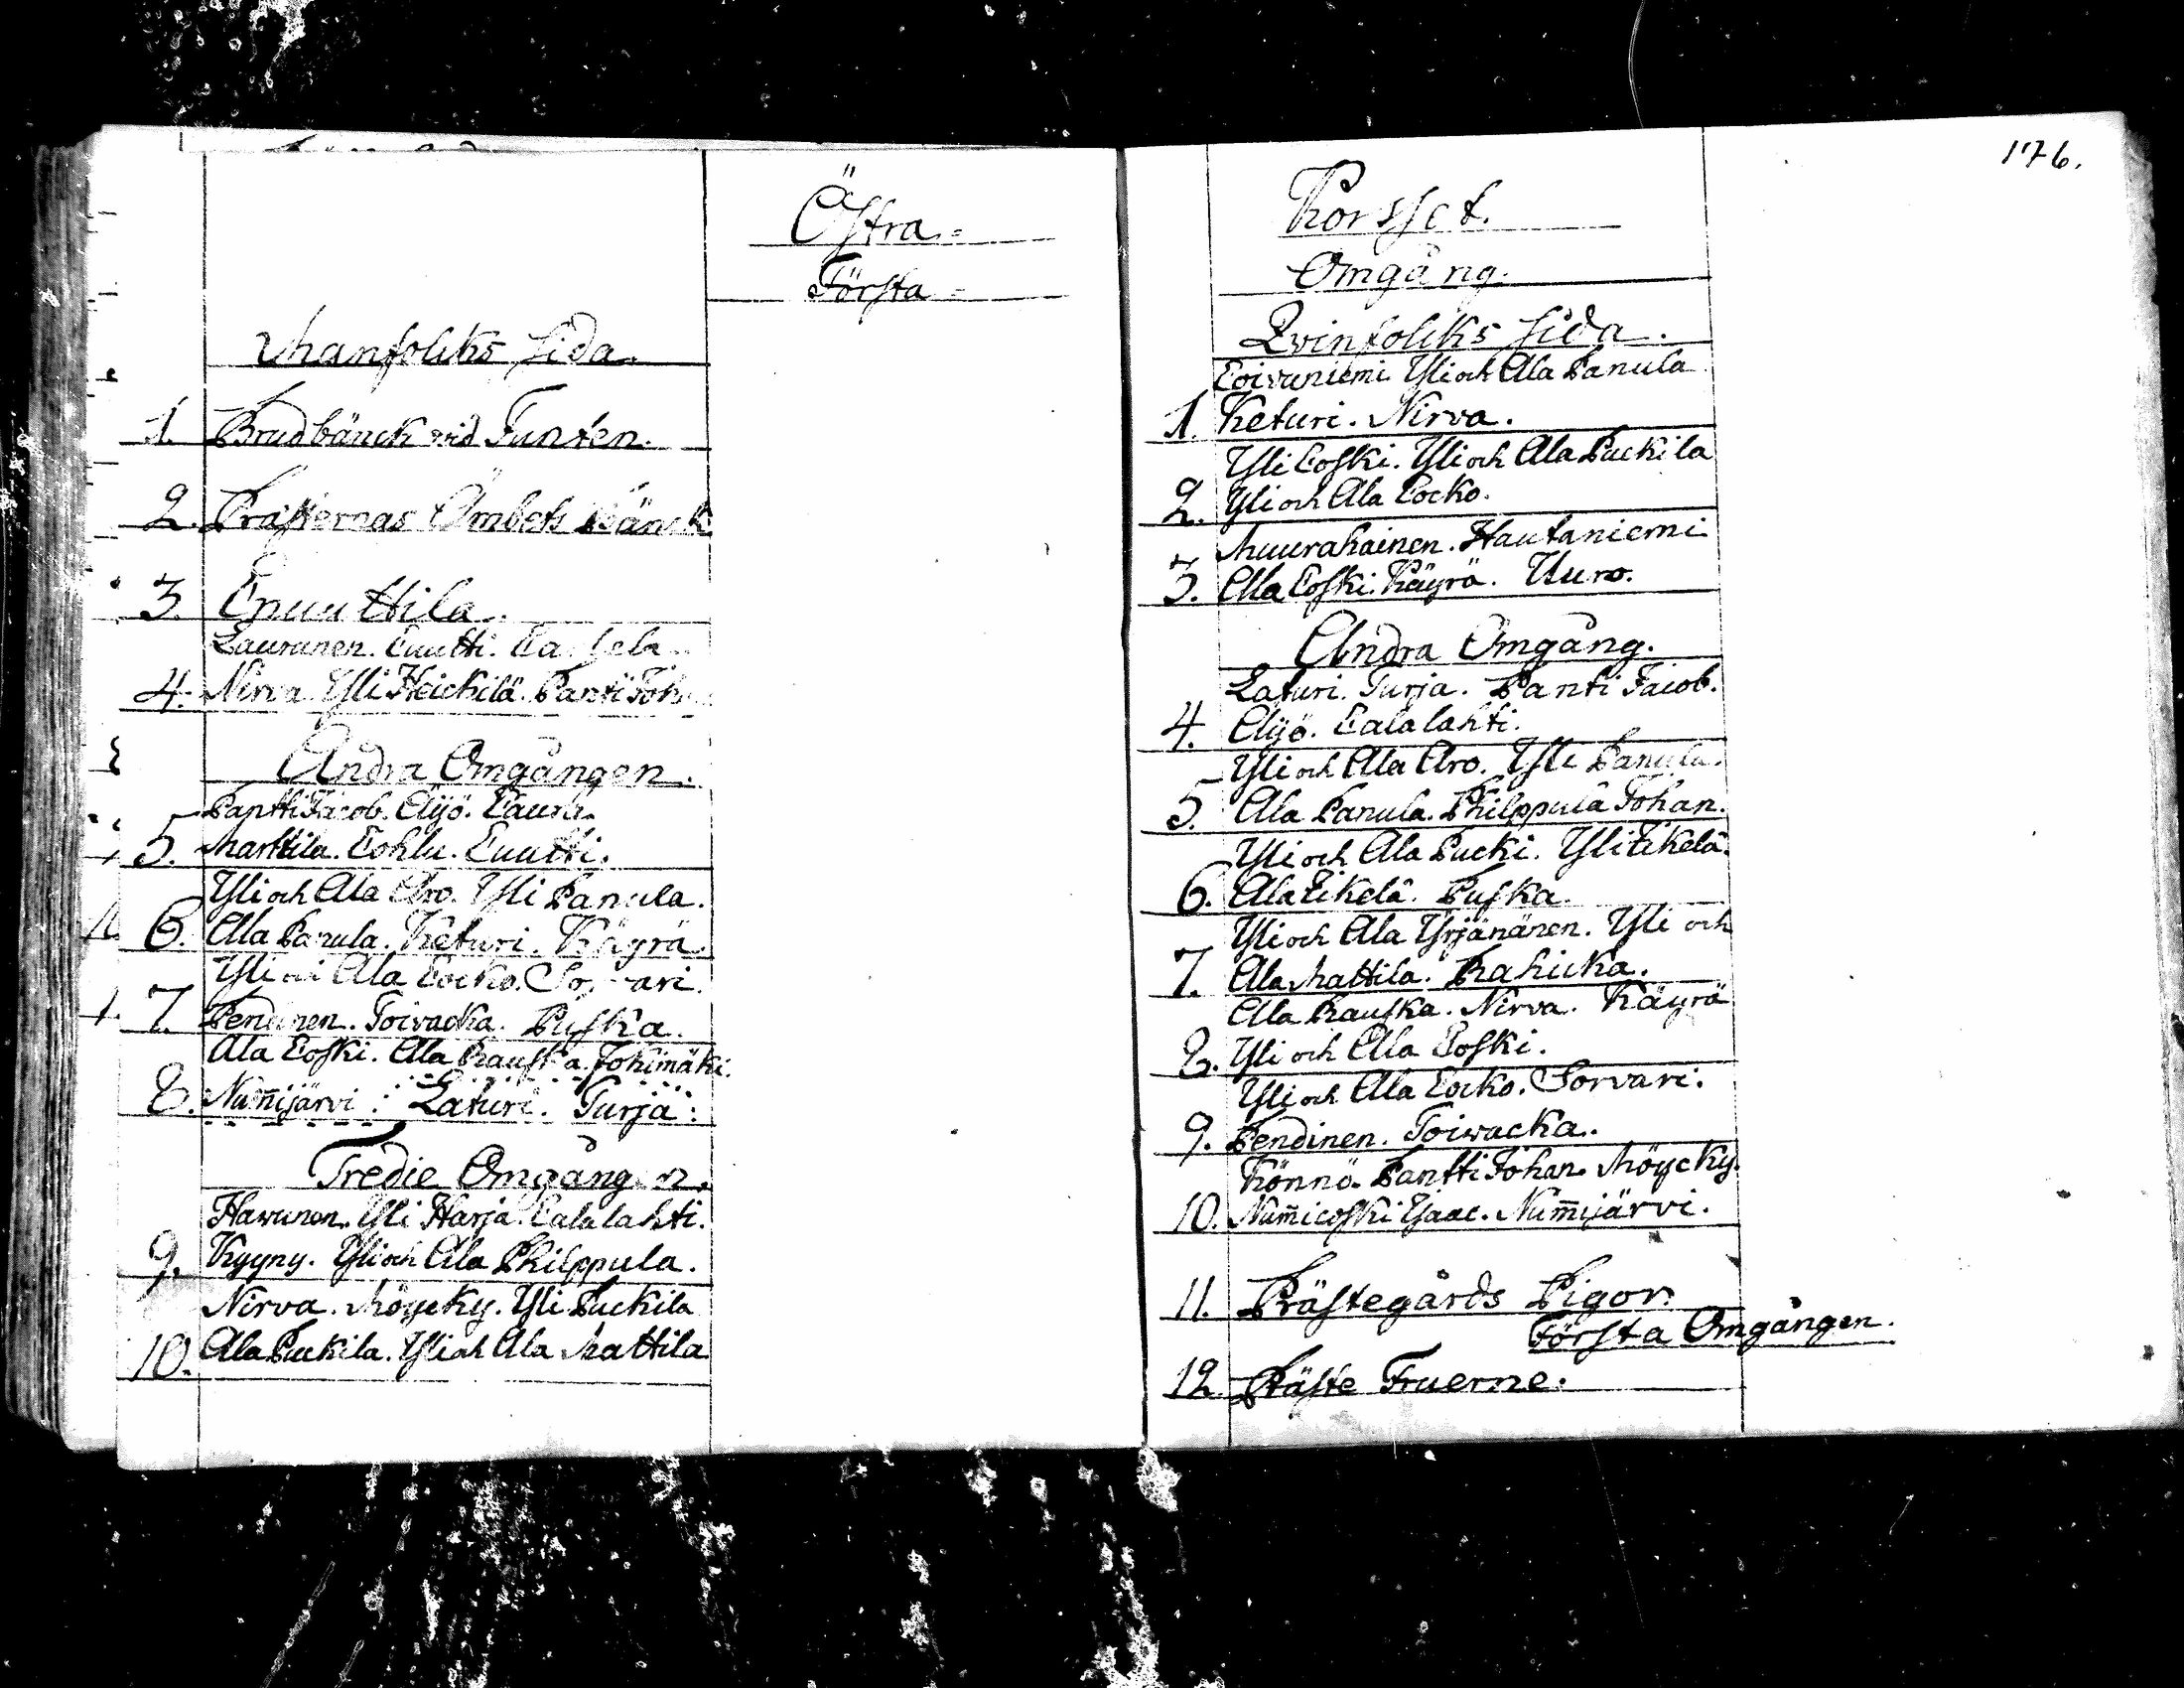 Östra-
Första-
Manfolcks sida.
1. Brudbänck vid Funten.
2. Prästernas Ämbets Bänck
3. Cnuuttila.
Laurunen. Cuutti.
4. Nirva. Yli Heickilä. Pantti Joh
Andra Omgången.
Pantti Jacob. Äijö. Caura.
5. Marttila. Cohlu. Cuutti.
Yli och Ala Aro. Yli Panula.
6. Ala Panula. Keturi. Käyrä.
Yli och Ala Cocko. Sorvari.
7. Pendinen. Toivacka. Puska.
Ala Coski. Ala Rauska. Jokimäki.
8. Num̄ijärvi. Laturi. Turja.
Tredie Omgången.
Havunen. Yli Harja. Calalahti.
9. Kyyny. Yli och Ala Philppula.
Nirva. Möycky. Yli Luckila
10. Ala Luckila. Yli och Ala Mattila
176.
Korsset.
Omgång.
Qvinfolcks sida.
Coivuniemi. Yli och Ala Panula
1. Keturi. Nirva.
Yli Coski. Yli och Ala Luckila
2. Yli och Ala Cocko.
Muurahainen. Hautaniemi
3. Ala Coski. Käyrä. Uuro.
Andra Omgång.
Laturi. Turja. Panti Jacob.
4. Äijö. Calalahti.
Yli och Ala Aro. Yli Panula.
5. Ala Panula. Philppula Johan.
Yli och Ala Lucki. Yli Eikelä.
6. Ala Eikelä. Puska.
Yli och Ala Yrjänänen. Yli och
7. Ala Mattila. Rahicka.
Ala Rauska. Nirva. Käyrä
8. Yli och Ala Coski.
Yli och Ala Cocko. Sorvari.
9. Pendinen. Toivacka.
Könnö. Pantti Johan. Möycky.
10. Num̄icoski Isaac. Num̄ijärvi.
11. Prästegårds Pigor.
Första Omgången.
12. Präste Fruerne.